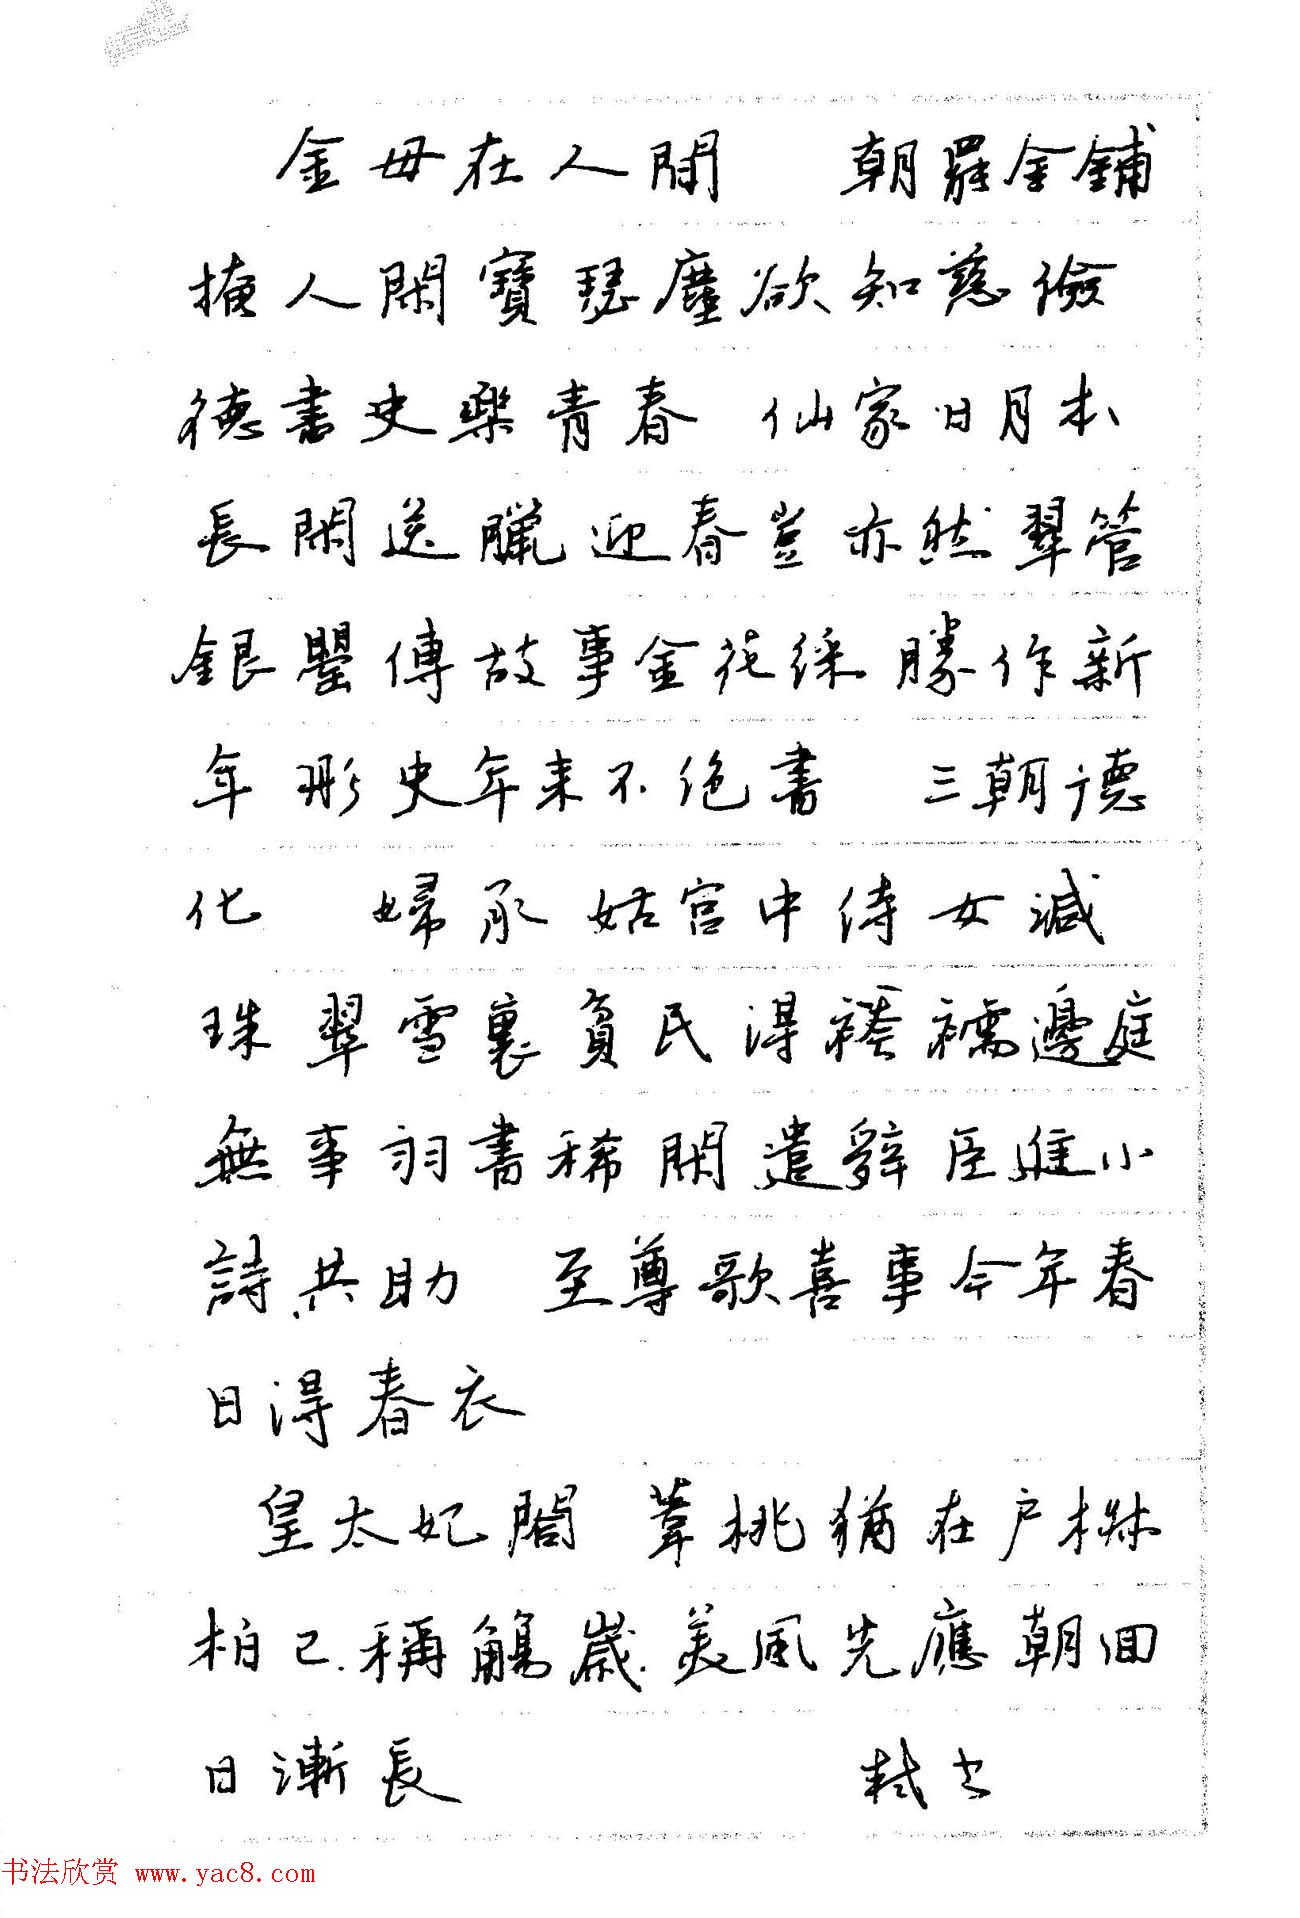 金母在人間　朝罷金鋪
掩人閑寶瑟塵欲知慈儉
德書史樂青春　仙家日月本
長閑送臘迎春豈亦然翠管
銀罌傳故事金花綵勝作新
年彤史年来不绝書　三朝德
化　婦承姑宫中侍女減
珠翠雪裏貧民得袴襦邊庭
無事羽書稀閑遣辭臣進小
詩共助　至尊歌喜事今年春
日得春衣
皇太妃閣　葦桃猶在户椒
柏已稱觴歲美風先應朝回
日漸長　軾書
书法欣赏 www.yac8.com